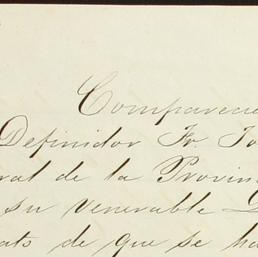 Comparecie
Definidor Fr. Jo
ral de la Provin
su venerable D
ato de que se ha